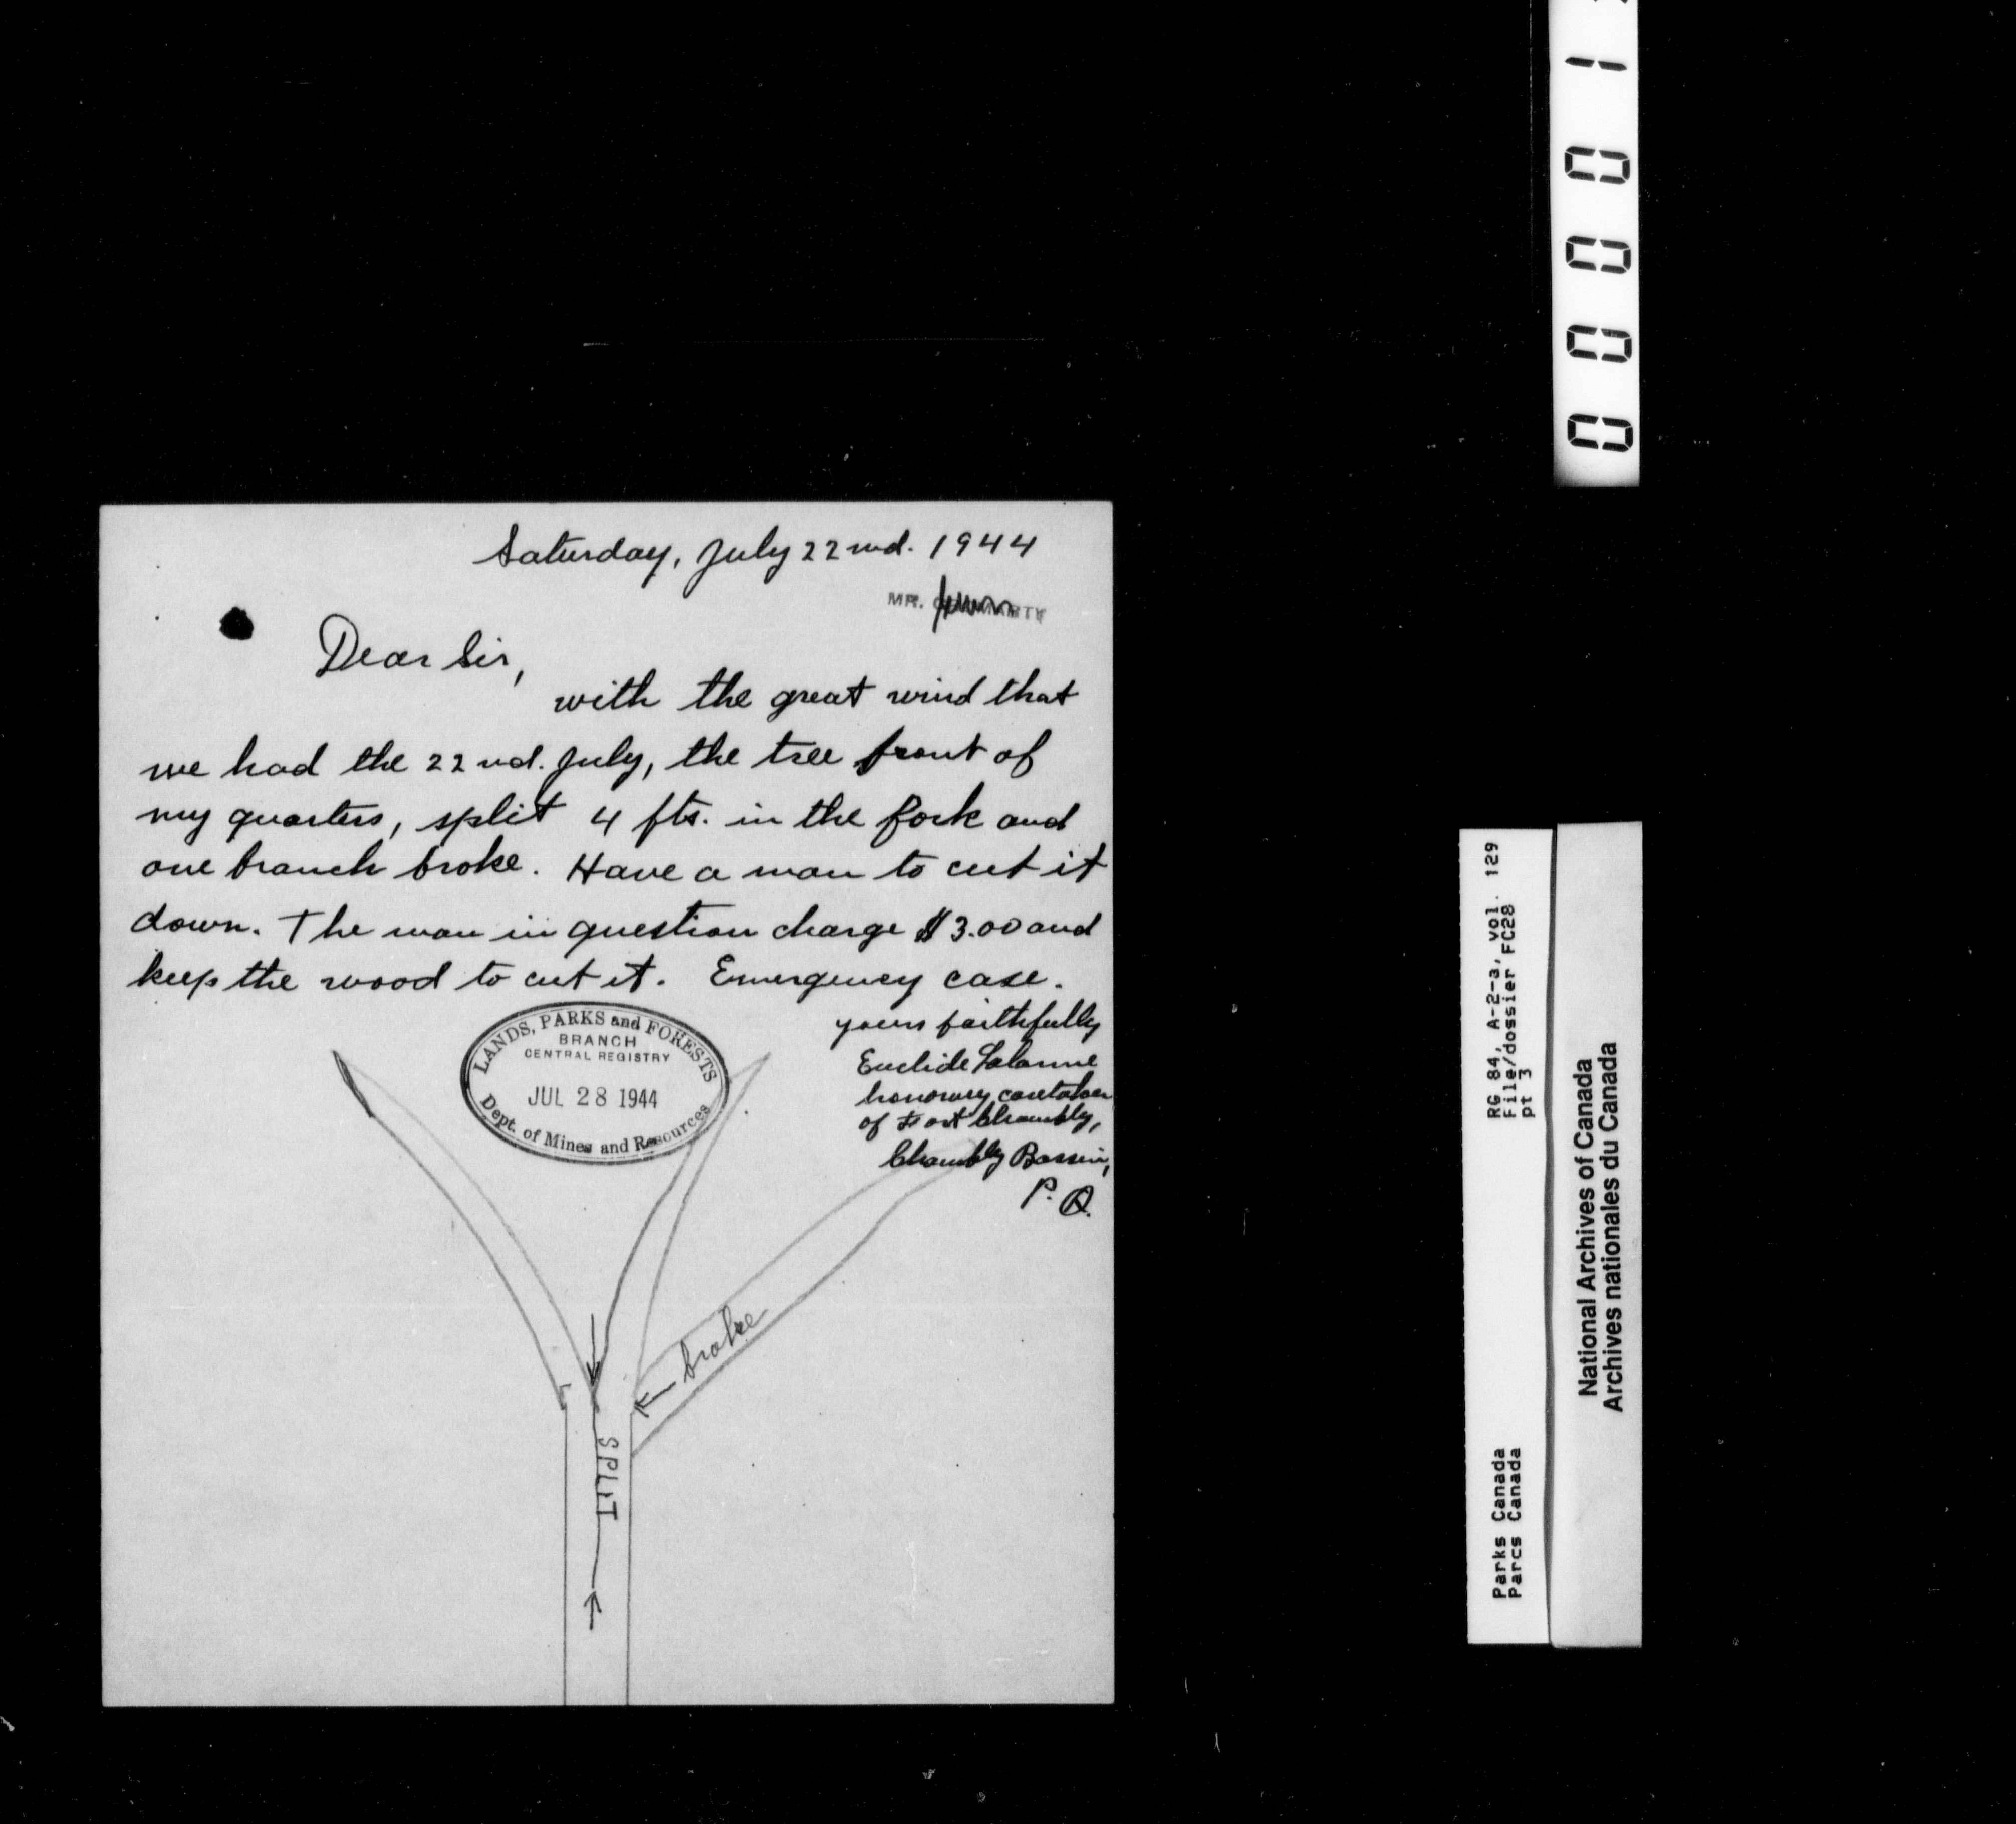 Saturday, July 22nd. 1944
MR.
Dear Sir,
with the great wind that
we had the 22nd. July, the tree front of
my quarters, split 4 fts. in the fork and
one branch broke. Have a man to cut it
down. The man in question charge $3.00 and
keep the wood to cut it. Emergency case.
yours faithfully
Euclide Lalanne
honorary caretaker
of Fort Chambly,
Chambly Bassin,
P. Q.
LANDS, PARKS and FORESTS
BRANCH
CENTRAL REGISTRY
JUL 28 1944
Dept. of Mines and Resources
broke
SPLIT
00001
RG 84, A-2-a, vol. 129
File/dossier FC28
pt 3
Parks Canada
Parcs Canada
National Archives of Canada
Archives nationales du Canada